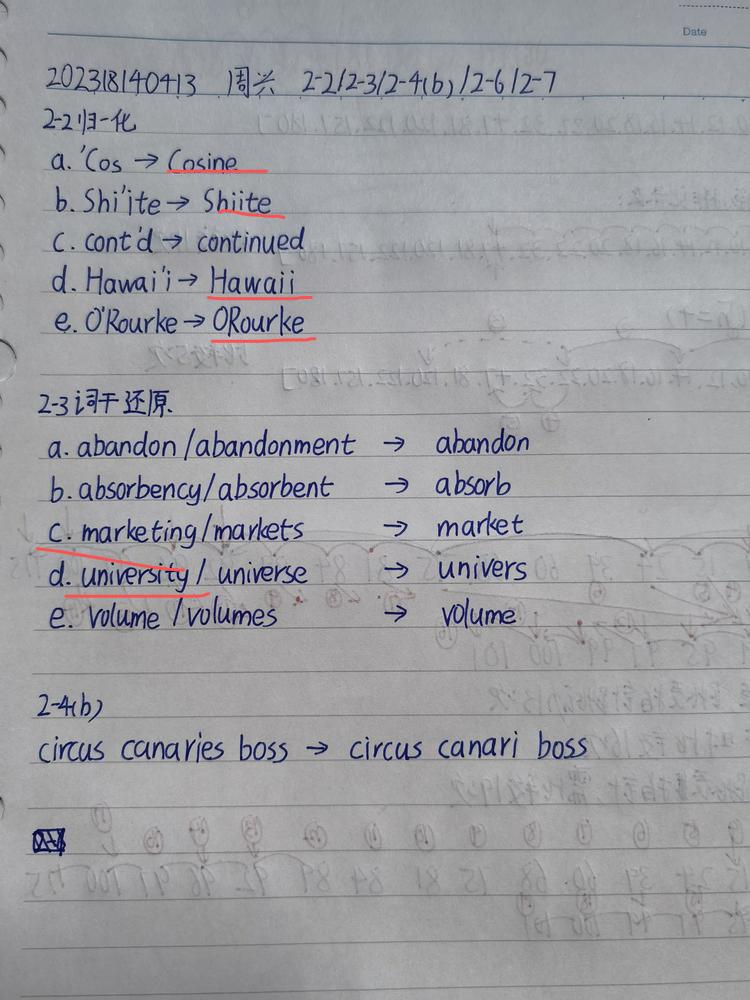 Date
202318140413 周兴 2-2/2-3/2-4(b)/2-6/2-7
2-2归一化
a. 'Cos → Cosine
b. Shi'ite → Shiite
c. cont'd → continued
d. Hawai'i → Hawaii
e. O'Rourke → ORourke
2-3词干还原.
a. abandon/abandonment → abandon
b. absorbency/absorbent → absorb
c. marketing/markets → market
d. university/universe → univers
e. volume/volumes → volume
2-4(b)
circus canaries boss → circus canari boss